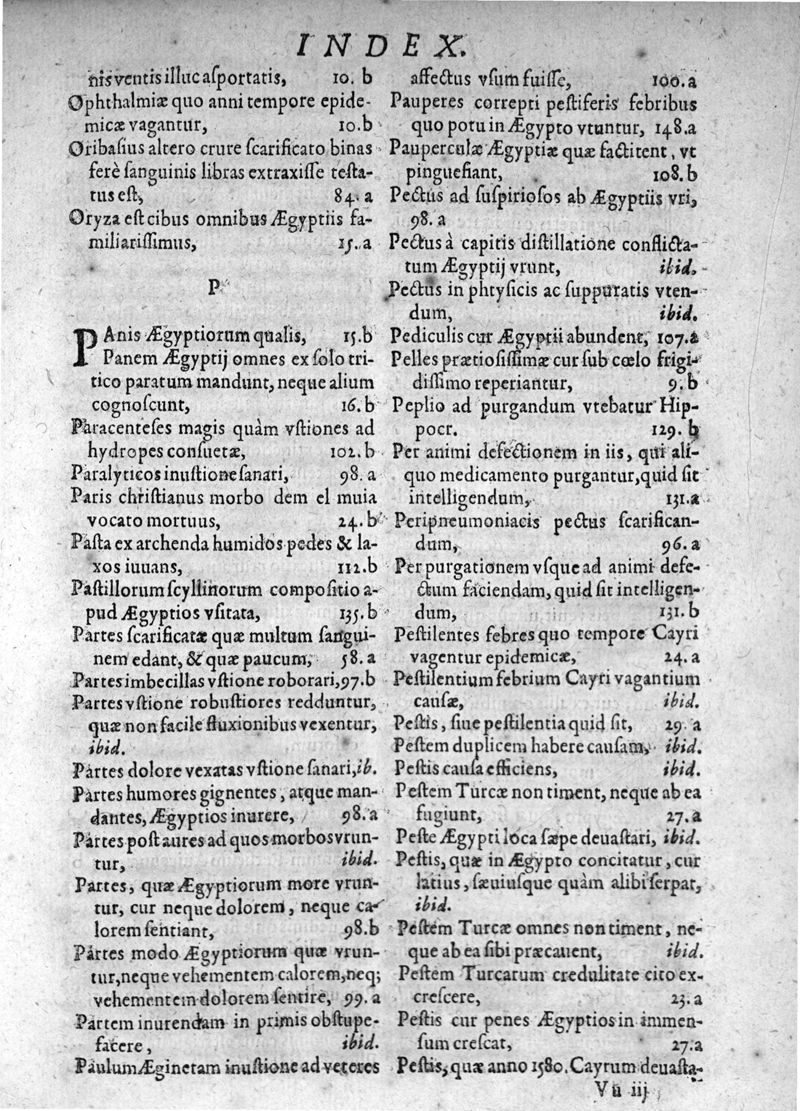 INDEX.
nis ventis illuc aſportatis, 10. b
Ophthalmiæ quo anni tempore epide-
micæ vagantur, 10. b
Oribaſius altero crure ſcarificato binas
ferè ſanguinis libras extraxiſſe teſta-
tus eſt, 84. a
Oryza eſt cibus omnibus Ægyptiis fa-
miliariſſimus, 15. a
P
PAnis Ægyptiorum qualis, 15. b
Panem Ægyptij omnes ex ſolo tri-
tico paratum mandunt, neque alium
cognoſcunt, 16. b
Paracenteſes magis quàm vſtiones ad
hydropes conſuetæ, 102. b
Paralyticos inuſtione ſanari, 98. a
Paris chriſtianus morbo dem el muia
vocato mortuus, 24. b
Paſta ex archenda humidos pedes & la-
xos iuuans, 112. b
Paſtillorum ſcyllinorum compoſitio a-
pud Ægyptios vſitata, 135. b
Partes ſcarificatæ quæ multum ſangui-
nem edant, & quæ paucum, 58. a
Partes imbecillas vſtione roborari, 97. b
Partes vſtione robuſtiores redduntur,
quæ non facile fluxionibus vexentur,
ibid.
Partes dolore vexatas vſtione ſanari, ib.
Partes humores gignentes, atque man-
dantes, Ægyptios inurere, 98. a
Partes poſt aures ad quos morbos vrun-
tur, ibid.
Partes, quæ Ægyptiorum more vrun-
tur, cur neque dolorem, neque ca-
lorem ſentiant, 98. b
Partes modo Ægyptiorum quæ vrun-
tur, neque vehementem calorem, neq;
vehementem dolorem ſentire, 99. a
Partem inurendam in primis obſtupe-
facere, ibid.
Paulum Æginetam inuſtione ad veteres
affectus vſum fuiſſe, 100. a
Pauperes correpti peſtiferis febribus
quo potu in Ægypto vtuntur, 148. a
Pauperculæ Ægyptiæ quæ factitent, vt
pinguefiant, 108. b
Pectus ad ſuſpirioſos ab Ægyptiis vri,
98. a
Pectus à capitis diſtillatione conflicta-
tum Ægyptij vrunt, ibid.
Pectus in phtyſicis ac ſuppuratis vten-
dum, ibid.
Pediculis cur Ægyptii abundent, 107. a
Pelles prætioſiſſimæ cur ſub cœlo frigi-
diſſimo reperiantur, 9. b
Peplio ad purgandum vtebatur Hip-
pocr. 129. b
Per animi defectionem in iis, qui ali-
quo medicamento purgantur, quid ſit
intelligendum, 131. a
Peripneumoniacis pectus ſcarifican-
dum, 96. a
Per purgationem vſque ad animi defe-
ctum faciendam, quid ſit intelligen-
dum, 131. b
Peſtilentes febres quo tempore Cayri
vagentur epidemicæ, 24. a
Peſtilentium febrium Cayri vagantium
cauſæ, ibid.
Peſtis, ſiue peſtilentia quid ſit, 29. a
Peſtem duplicem habere cauſam, ibid.
Peſtis cauſa efficiens, ibid.
Peſtem Turcæ non timent, neque ab ea
fugiunt, 27. a
Peſte Ægypti loca ſæpe deuaſtari, ibid.
Peſtis, quæ in Ægypto concitatur, cur
latius, ſæuiuſque quàm alibi ſerpat,
ibid.
Peſtem Turcæ omnes non timent, ne-
que ab ea ſibi præcauent, ibid.
Peſtem Turcarum credulitate cito ex-
creſcere, 23. a
Peſtis cur penes Ægyptios in immen-
ſum creſcat, 27. a
Peſtis, quæ anno 1580. Cayrum deuaſta-
Vu iij